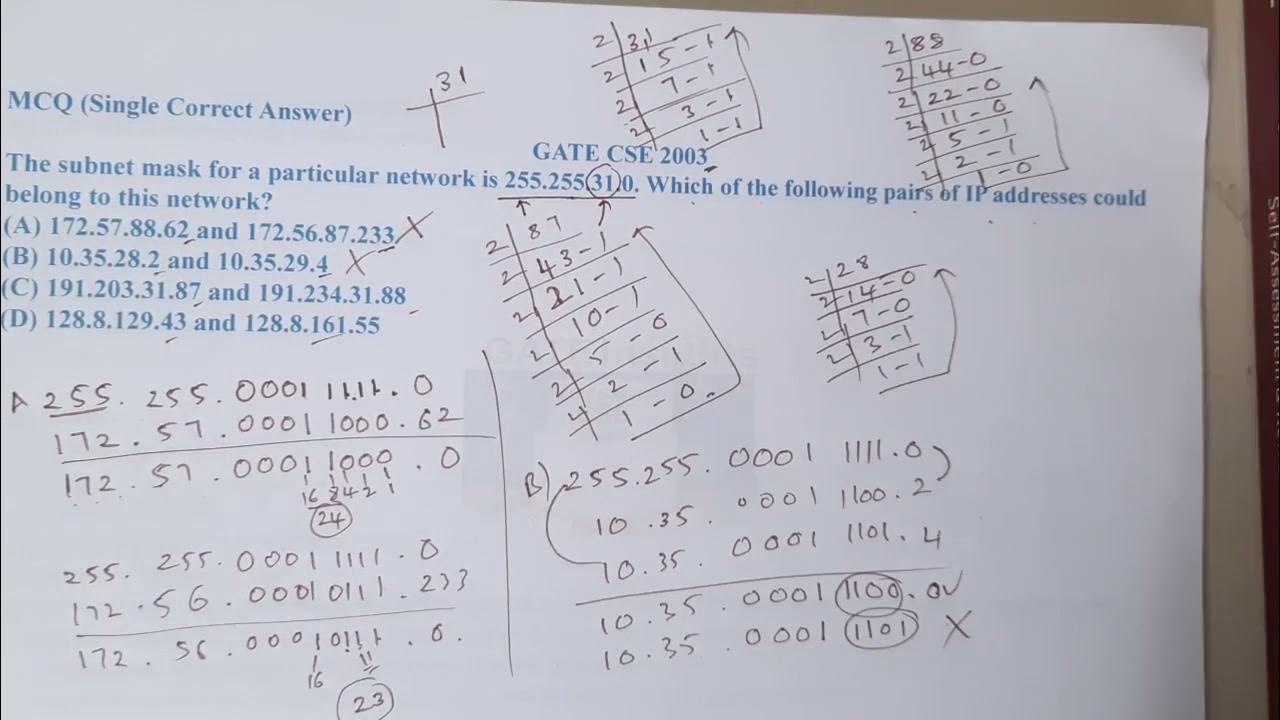 MCQ (Single Correct Answer)
31
2 31
2 15 - 1
2 7 - 1
2 3 - 1
2 1 - 1
2 88
2 44 - 0
2 22 - 0
2 11 - 0
2 5 - 1
2 2 - 1
2 1 - 0
GATE CSE 2003
The subnet mask for a particular network is 255.255.31.0. Which of the following pairs of IP addresses could
belong to this network?
(A) 172.57.88.62 and 172.56.87.233 X
(B) 10.35.28.2 and 10.35.29.4 X
(C) 191.203.31.87 and 191.234.31.88
(D) 128.8.129.43 and 128.8.161.55
2 87
2 43 - 1
2 21 - 1
2 10 - 1
2 5 - 0
2 2 - 1
2 1 - 0
2 28
2 14 - 0
2 7 - 0
2 3 - 1
2 1 - 1
A 255. 255. 0001 1111. 0
172. 57. 0001 1000. 62
172. 57. 0001 1000. 0
16 8 4 2 1
24
255. 255. 0001 1111. 0
172. 56. 0001 0111. 233
172. 56. 0001 0111. 0.
16
23
B) 255.255. 0001 1111.0
10.35. 0001 1100.2
10.35. 0001 1101.4
10.35. 0001 1100.0 ✓
10.35. 0001 1101 X
Self-Assessment